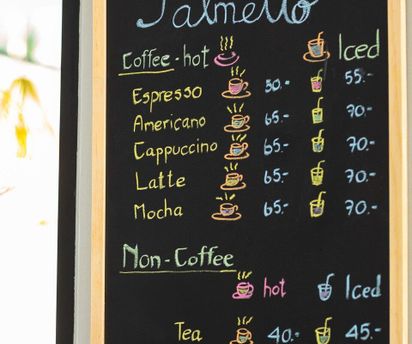 Palmetto
Coffee - hot Iced
Espresso 50.- 55.-
Americano 65.- 70.-
Cappuccino 65.- 70.-
Latte 65.- 70.-
Mocha 65.- 70.-
Non - Coffee
hot Iced
Tea 40.- 45.-